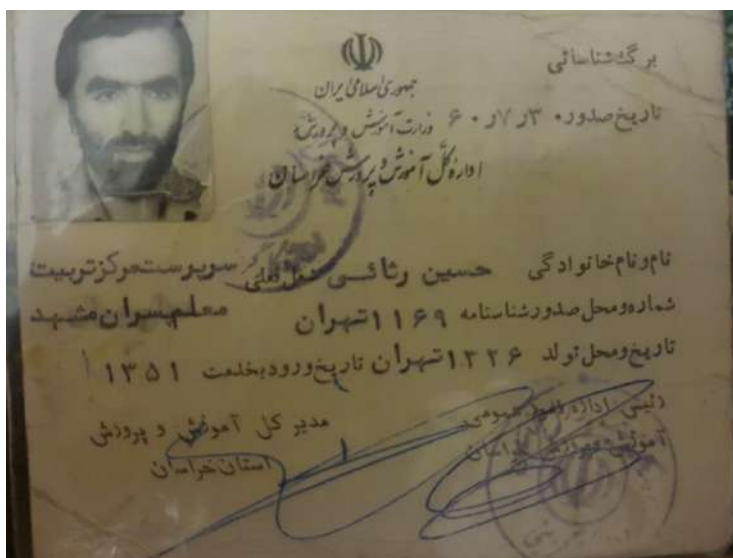 برگ شناسائی
جمهوری اسلامی ایران
تاریخ صدور ۳۰ر۷ر۶۰ وزارت آموزش و پرورش
اداره کل آموزش و پرورش خراسان
نام و نام خانوادگی حسین رثائی شغل فعلی سرپرست مرکز تربیت
شماره و محل صدور شناسنامه ۱۱۶۹ تهران معلم پسران مشهد
تاریخ و محل تولد ۱۳۲۶ تهران تاریخ ورود بخدمت ۱۳۵۱
رئیس اداره امور عمومی مدیر کل آموزش و پرورش
آموزش و پرورش خراسان استان خراسان